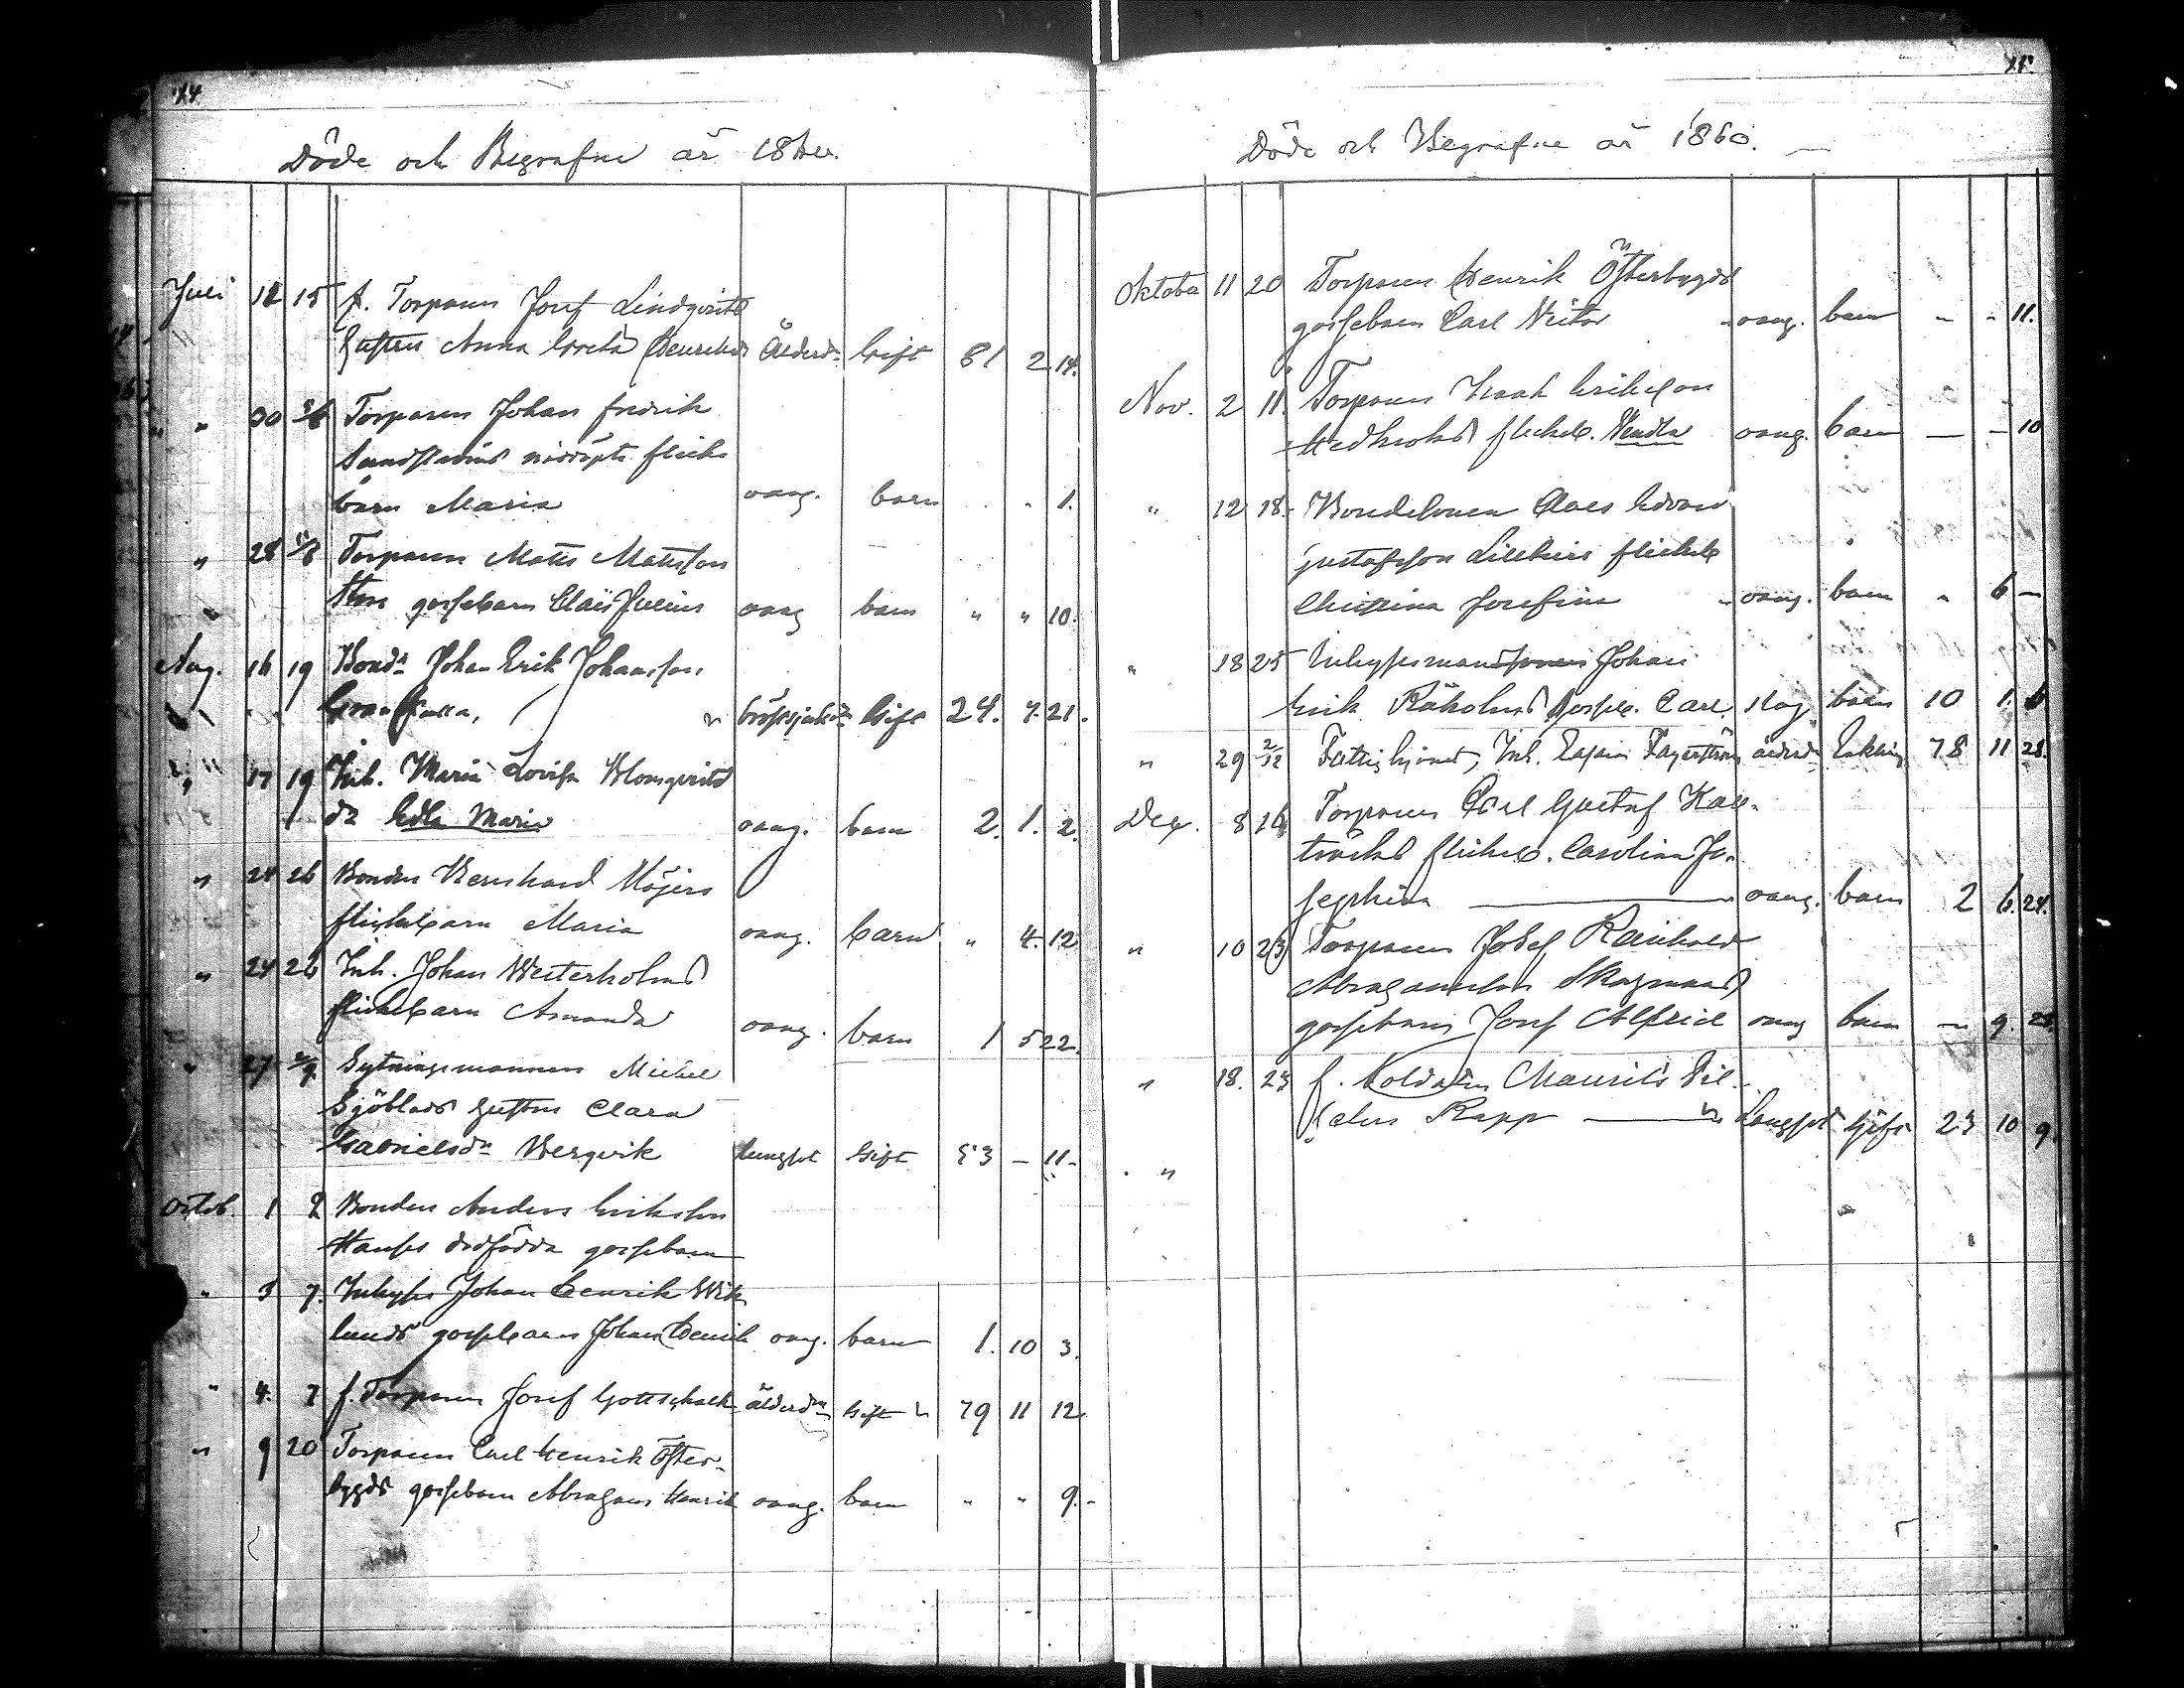 44
Döde och Begrafne år
Juli 12 15 f. Torparen Josef Lindqvists
Hustru Anna Greta Henriksdr Ålderd. Gift 81 2 14.
" 30 Torparen Johan Fredrik
nödöpta flicke
barn Maria oang. barn " " 1.
" 28 Torparen Mats Matsson
gossebarn Claës Julius oang barn " " 10.
Aug. 16 19 Bond. Johan Erik Johansson
Grankulla, bröstsjukd. Gift 24. 7. 21.
" 17 19 Inh. Maria Lovisa Blomqvists
dr Edla Maria oang. barn 2. 1. 2.
" 24 26 Bonden Bernhard Höjers
flickebarn Maria oang. barn " 4. 12
" 24 26 Inh. Johan Westerholms
flickebarn Amanda oang. barn 1 5 22.
" 27 2/9 Sytningsmannen Michel
Sjöblads hustru Clara
Gabrielsdr Bergvik lungsot Gift 53 – 11 -
Octob. 1 2 Bonden Anders Erikson
dödfödda gossebarn
" 3 7. Inhyses Johan Henrik Wik
lunds gossebarn Johan Henrik oang. barn 1. 10 3.
" 4. 7 f. Torparen Josef Gottschalk ålderdm Gift 79 11 12.
" 9 20 Torparen Carl Henrik Öster-
bygds gossebarn Abraham Henrik oang. barn " " 9. -
Döde och Begrafne år 1860. —
Oktober 11 20 Torparen Henrik Österbygds
gossebarn Carl Victor oang. barn " " 11.
Nov. 2 11. Torparen Isaak Erikson
flickeb. Wendla oang. barn — – 10
" 12 18. Bondesonen Claes Edvard
Gustafsson flickeb
Christina Josefina oang. barn " 6 –
" 18 25 Inhysesman Johan
Erik gosseb. Carl Slag barn 10 1. 6
" 29 2/12 Fattighjonet, Inh. Fagerström ålderd. Enkling 78 11 28.
Dec. 8 16 Torparen Carl Gustaf Kall-
träsks flickeb. Carolina Jo-
sephina — oang. barn 2 6. 24.
" 10 23 Torparen Josef Reinhold
Abrahamson Skogmans
gossebarn Josef Alfred oang barn — 9. 28.
" 18. 23 f. Soldaten Maurits Vil-
helm Rapp — Lungsot Gift 23 10 9.
"